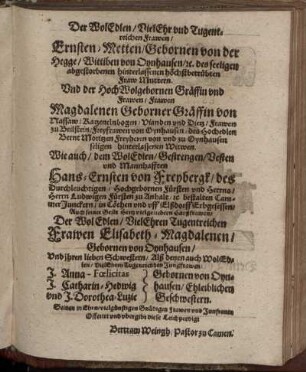 Der WolEdlen / VielEhr vnd Tugent-
reichen Frawen /
Ernsten-Metten / Gebornen von der
Hegge / Wittiben von Oynhausen / ꝛc. des seeligen
abgestorbenen hinterlassenen höchstbetrübten
Fraw Muttern.
Vnd der HochWolgebornen Gräffin vnd
Frawen / Frawen
Magdalenen Geborner Gräffin von
Nassaw / Katzenelnbogen / Vianden vnd Dietz / Frawen
zu Beilstein / Freyfrawen von Oynhausen / des Hochedlen
Bernt Moritzen Freyherrn von vnd zu Oynhausen
seligen hinterlassenen Witwen.
Wie auch / dem WolEdlen / Gestrengen / Vesten
und Mannhafften
Hans-Ernsten von Freybergk / des
Durchleuchtigen / Hochgebornen Fürsten und Herrns /
Herrn Ludwigen Fürsten zu Anhalt / ꝛc bestalten Cam-
mer Junckern / in Cochen und uff Elßdorff Erbgesessen /
Auch seiner Gestr. Hertzvielgeliebten Haußfrawen /
Der WolEdlen / VielEhren Tugentreichen
Frawen Elisabeth-Magdalenen /
Gebornen von Oynhausen /
Und ihren lieben Schwestern / Alß denen auch WolEd-
len / VielEhren Tugentreichen Jungfrawen
J. Anna-Fœlicitas
J. Catharin-Hedwig
vnd J. Dorothea-Lucie
Gebornen von Oyn-
hausen / Eheliblichen
Geschwestern.
Seinen in Ehren vielgünstigen Gnädigen Frawen vnd Junfrawen
Offerirt vnd vbergibt diese Leichpredigt
Bertram Weingh. Pastor zu Camen.